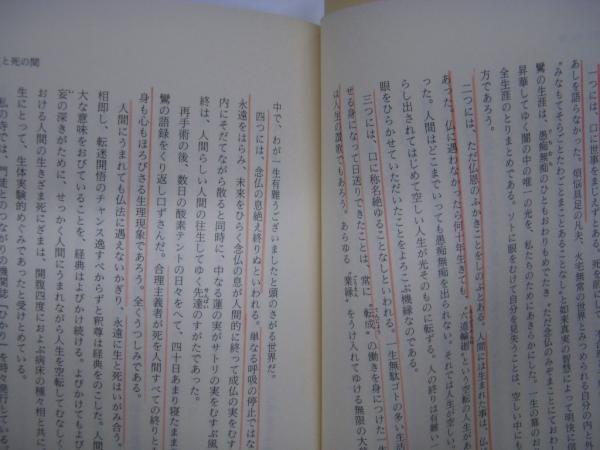 一つには、口に世事をまじえざるとある。死を前にして
あしを語らなかった。煩悩具足の凡夫、火宅無常の世界とみつめられる自分の内と外
"みなもてそらごとたわごとまことあることなしと如来真実の智慧によって明快に
鸞の生涯は、愚痴無痴のひともおわりもめでたき、ただ念仏のみぞまことにておわし
昇華してゆく闇の中の唯一の光を、私たちのためにあきらかにした。一生の幕のおわ
全生涯のとりまとめである。ソトに眼をむけて自分を見失うことは、空しい中にも
方であろう。
二つには、ただ仏恩のふかきことをしのぶとある。人間に生まれた事は、仏
あった。仏法に遇わなかったら何十年生きても、六道輪廻という空転の人生があ
った。人間はどこまでいっても愚痴無痴を出れない。それでは人生が空しい。
らし出されてはじめて空しい人生が光そのものに転ずる。人の終りは有難い一
眼をひらかせていただいたことをよろこぶ機縁なのである。
三つには、口に称名絶ゆることなしといわれる。一生無駄ゴトの多い生活
せる身になって日送りできたことは、常に"転成"の働きを身につけた一生
は人生の讃歌でもあろう。あらゆる"業縁"をうけ入れてゆける無限の大
中で、わが一生有難うございましたと頭のさがる世界だ。
四つには、念仏の息絶え終りぬといわれる。単なる呼吸の停止ではな
永遠をはらみ、未来をひらく念仏の息が人間的に終って成仏の実をむす
内にそだてながら散ると同時に、中なる蓮の実がサトリの実をむすぶ風
終は、人間らしい人間の往生してゆく先達のすがたであった。
再手術の後、数日の酸素テントの日々をへて、四十日あまり寝たまま
鸞の語録をくり返し口ずさんだ。合理主義者が死を人間すべての終りと
身も心もほろびさる生理現象であろう。全くうつしみである。
人間にうまれても仏法に遇えないかぎり、永遠に生と死はいがみ合う。
相即し、転迷開悟のチャンス逸すべからずと釈尊は経典をのこした。人間
大な意味をおびていることを、経典はよびかけ続ける。よびかけてもよび
妄の深きがために、せっかく人間にうまれながら人生を空転してむなしく
おける人間の生きざま死にざまは、開腹四度におよぶ病床の種々相と共に
生にとって、生体実験的めぐみであったと受けとめている。
私の寺では、門徒とのつながりの機関誌「ひかり」を時々発行している。
と死の間